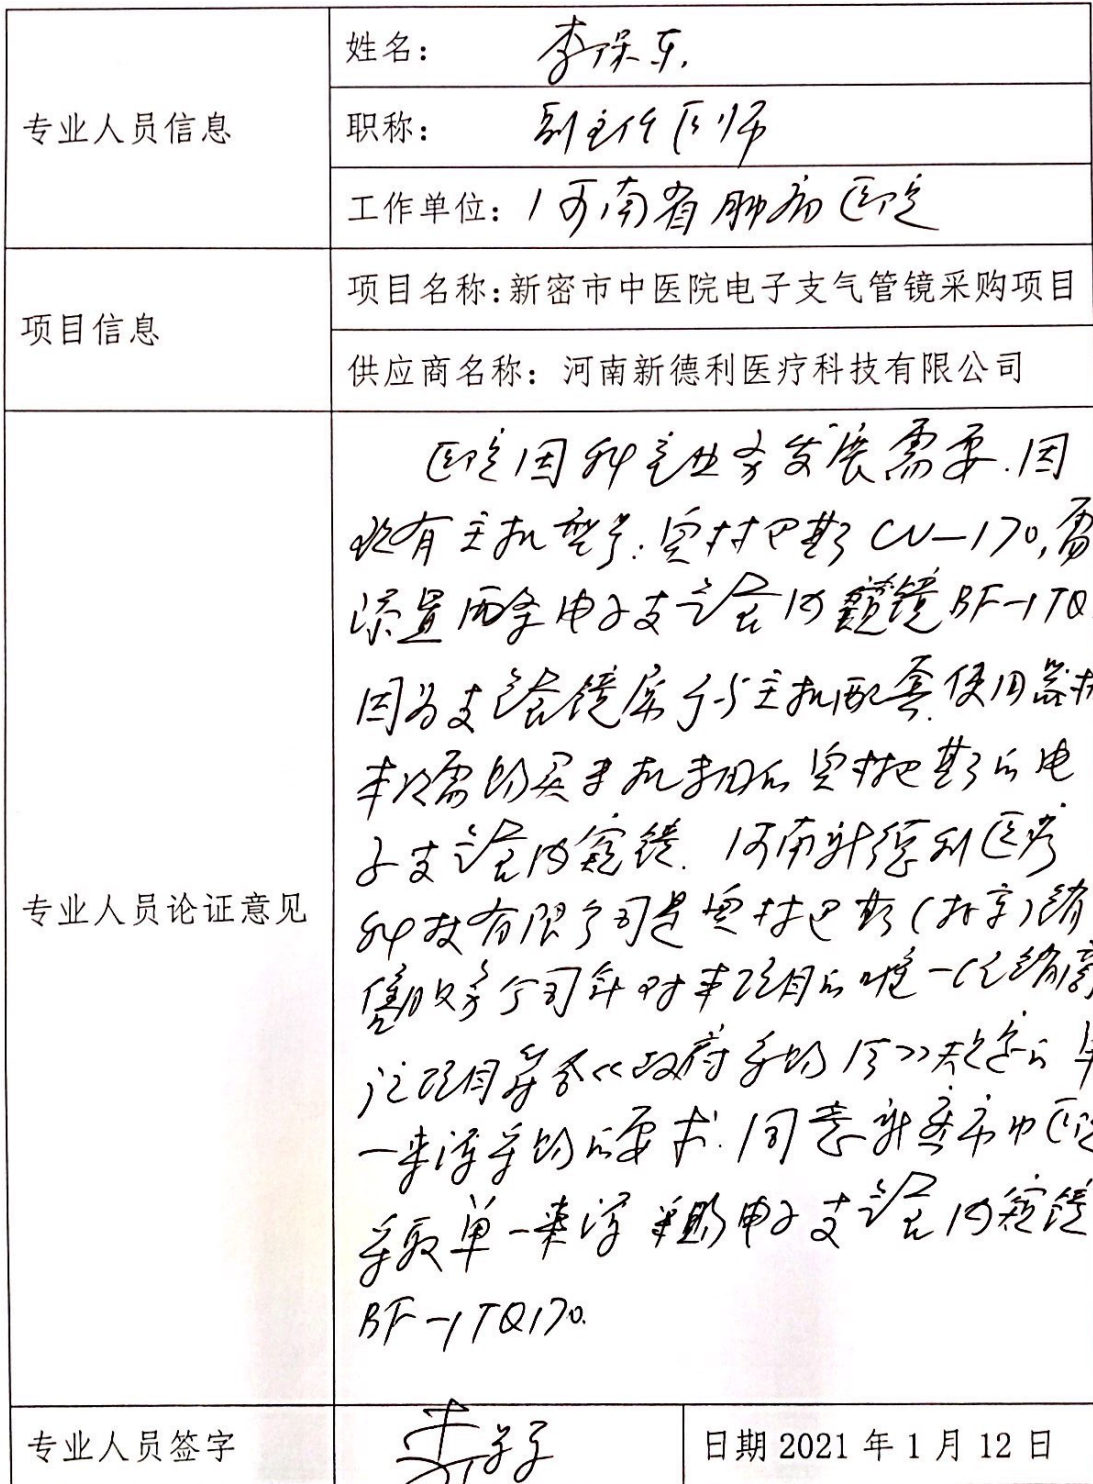 专业人员信息
姓名：李保东.
职称：副主任医师
工作单位：河南省肿瘤医院
项目信息
项目名称：新密市中医院电子支气管镜采购项目
供应商名称：河南新德利医疗科技有限公司
专业人员论证意见
医院因科室业务发展需要.因
现有主机型号:奥林巴斯CV-170,需
添置两条电子支气管内窥镜BF-1TQ
因为支气管镜属于与主机配套使用器材
本次需购买主机专用的奥林巴斯的电
子支气管内窥镜.河南新德利医疗
科技有限公司是奥林巴斯(北京)销
售服务公司针对本项目的唯一经销商
该项目符合《政府采购法》规定的单
一来源采购的要求.同意新密市中医院
采取单一来源采购电子支气管内窥镜
BF-1TQ170.
专业人员签字
日期 2021 年 1 月 12 日